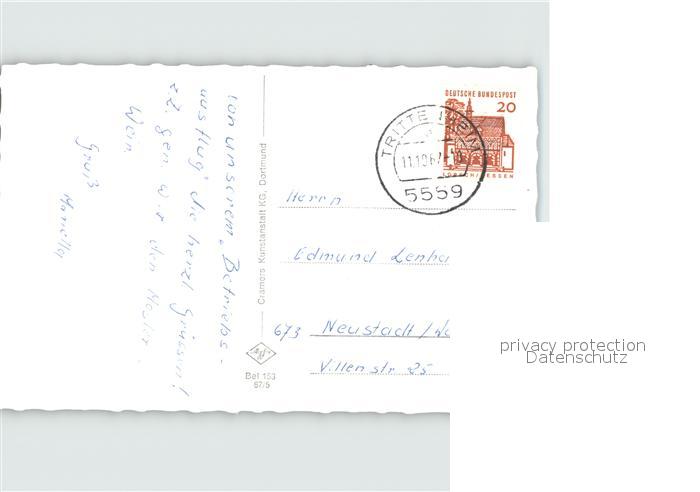 von unserem "Betriebs-
ausflug" die herzl. Grüsse!
z.Z. gen
den
Wein.
Gruß
Cramers Kunstanstalt KG, Dortmund
Bel 153
67/5
DEUTSCHE BUNDESPOST
20
TRITTENHEIM
11.10.67
5559
Herrn
Edmund Lenha
673 Neustadt / We
Villenstr 25
privacy protection
Datenschutz